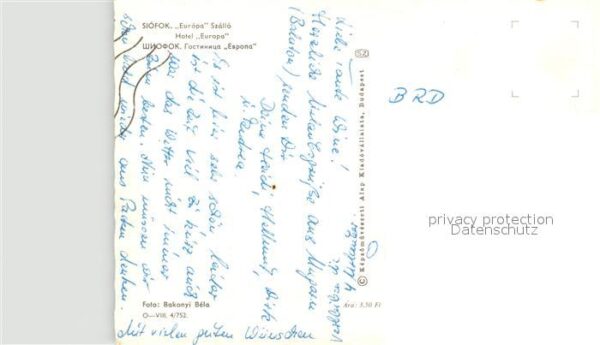 SIÓFOK. „Európa” Szálló
Hotel „Europa”
ШИОФОК. Гостиница „Европа”
Liebe Tante Wine!
Herzliche Urlaubsgrüße aus Ungarn
senden Dir
Deine Heidi, Hellmut, Dirk
u. Andrea.
Es ist hier sehr schön. Leider
ist die Zeit viel zu kurz auch
war das Wetter nicht immer
am besten. Nun müssen wir
schon bald wieder ans Packen denken.
Mit vielen guten Wünschen
© Képzőművészeti Alap Kiadóvállalata, Budapest
BRD
privacy protection
Datenschutz
Foto: Bakonyi Béla
O—VIII. 4/752.
Ára: 3,50 Ft